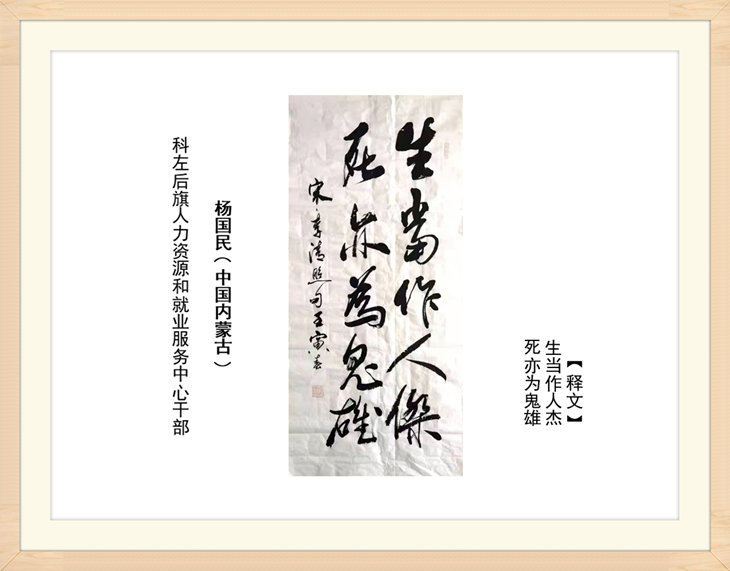 生當作人傑
死亦為鬼雄
宋·李清照句壬寅春
【释文】
生当作人杰
死亦为鬼雄
杨国民（中国内蒙古）
科左后旗人力资源和就业服务中心干部